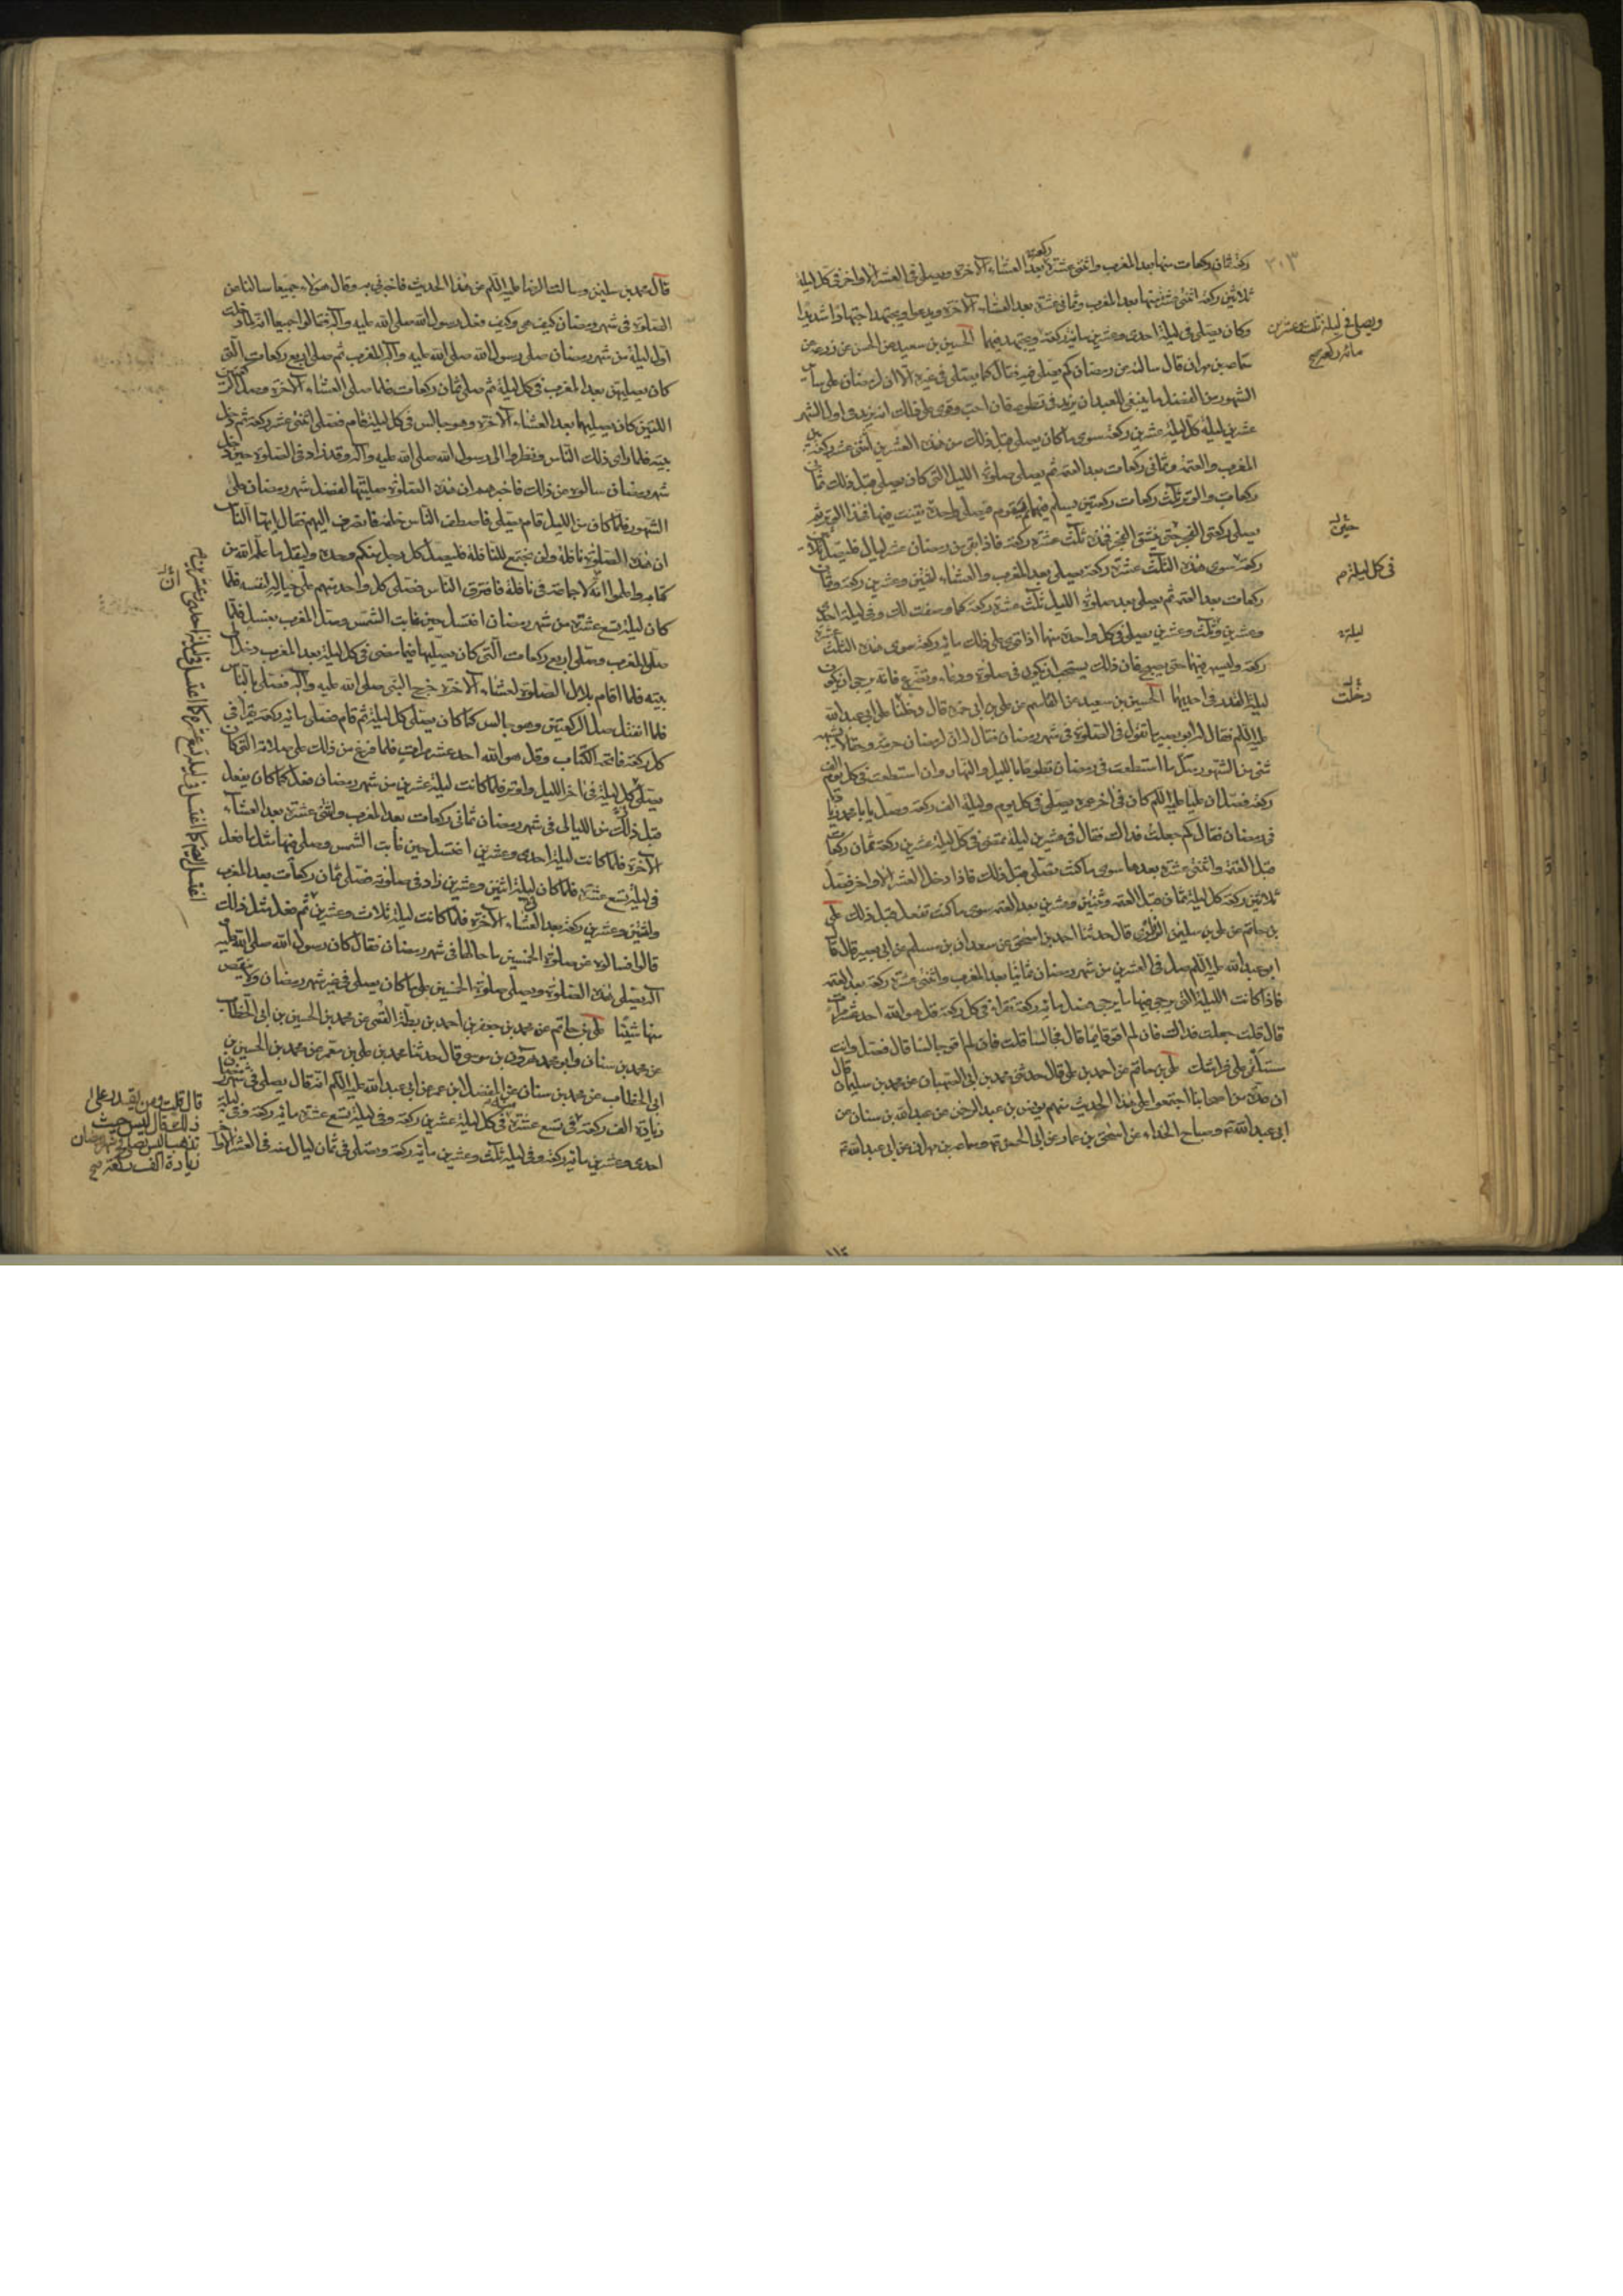 ركعة ثمان ركعات منها بعد المغرب واثنتى عشرة ركعة بعد العشاء الآخرة ويصلى فى العشر الاواخر فى كل ليلة
ثلاثين ركعة اثنتى عشرة منها بعد المغرب وثمانى عشرة بعد العشاء الآخرة ويدعو ويجتهد اجتهادا شديدا
وكان يصلى فى ليلة احدى وعشرين مائة ركعة ويجتهد فيهما الحسين بن سعيد عن الحسن عن زرعة عن
سماعة بن مهران قال سالته عن رمضان كم يصلى فيه فقال كما يصلى فى غيره الا ان لرمضان على سائر
الشهور من الفضل ما ينبغى للعبد ان يزيد فى تطوعه فان احب وقوى على ذلك ان يزيد فى اول الشهر
عشرين ليلة كل ليلة عشرين ركعة سوى ما كان يصلى قبل ذلك من هذه العشرين اثنتى عشرة ركعة بين
المغرب والعتمة وثمانى ركعات بعد العتمة ثم يصلى صلوة الليل التى كان يصلى قبل ذلك ثمان
ركعات والوتر ثلث ركعات ركعتين يسلم فيهما ثم يقوم فيصلى واحدة يقنت فيها فهذا الوتر ثم
يصلى ركعتى الفجر حتى ينشق الفجر فهذه ثلث عشرة ركعة فاذا بقى من رمضان عشر ليال فليصل ثلاثين
ركعة سوى هذه الثلث عشرة ركعة يصلى بعد المغرب والعشاء اثنتين وعشرين ركعة وثمان
ركعات بعد العتمة ثم يصلى بعد صلوة الليل ثلث عشرة ركعة كما وصفت لك وفى ليلة احدى
وعشرين وثلث وعشرين يصلى فى كل واحدة منهما اذا قوى على ذلك مائة ركعة سوى هذه الثلث عشرة
ركعة وليسهر فيهما حتى يصبح فان ذلك يستحب ان يكون فى صلوة ودعاء وتضرع فانه يرجى ان يكون
ليلة القدر فى احديهما الحسين بن سعيد عن القاسم عن على بن ابى حمزة قال دخلنا على ابى عبد الله
عليه السلم فقال له ابو بصير ما تقول فى الصلوة فى شهر رمضان فقال له ان لرمضان حرمة وحقا لا يشبهه
شئ من الشهور صل ما استطعت فى رمضان تطوعا بالليل والنهار وان استطعت فى كل يوم الف
ركعة فصل ان عليا عليه السلم كان فى اخر عمره يصلى فى كل يوم وليلة الف ركعة وصل يا ابا محمد زيادة
فى رمضان فقال كم جعلت فداك فقال فى عشرين ليلة تمضى فى كل ليلة عشرين ركعة ثمان ركعات
قبل العتمة واثنتى عشرة بعدها سوى ما كنت تصلى قبل ذلك فاذا دخل العشر الاواخر فصل
ثلاثين ركعة كل ليلة ثمان قبل العتمة وثنتين وعشرين بعد العتمة سوى ما كنت تفعل قبل ذلك على
بن حاتم عن على بن سليمن الزرارى قال حدثنا احمد بن اسحق عن سعدان بن مسلم عن ابى بصير قال قال
ابو عبد الله عليه السلم صل فى العشرين من شهر رمضان ثمانيا بعد المغرب واثنتى عشرة ركعة بعد العتمة
فاذا كانت الليلة التى يرجى فيها ما يرجى فصل مائة ركعة تقرا فى كل ركعة قل هو الله احد عشر مرات
قال قلت جعلت فداك فان لم اقو قايما قال فجالسا قلت فان لم اقو جالسا قال فصل وانت
مستلق على فراشك على بن حاتم عن احمد بن على قال حدثنى محمد بن ابى الصهبان عن محمد بن سليمان قال
ان عدة من اصحابنا اجتمعوا على هذا الحديث منهم يونس بن عبد الرحمن عن عبد الله بن سنان عن
ابى عبد الله ع وصباح الحذاء عن اسحق بن عمار عن ابى الحسن ع وسماعة بن مهران عن ابى عبد الله ع
٢٠٣
ويصلى فى ليلة ثلث وعشرين
مائة ركعة صح
حين
فى كل ليلة
ليلة
دخلت
قال محمد بن سليمن وسالت الرضا عليه السلم عن هذا الحديث فاخبرنى به وقال هؤلاء جميعا سالنا عن
الصلوة فى شهر رمضان كيف هى وكيف فعل رسول الله صلى الله عليه وآله فقالوا جميعا انه لما دخلت
اول ليلة من شهر رمضان صلى رسول الله صلى الله عليه وآله المغرب ثم صلى اربع ركعات التى
كان يصليهن بعد المغرب فى كل ليلة ثم صلى ثمان ركعات فلما صلى العشاء الآخرة وصلى الركعتين
اللتين كان يصليهما بعد العشاء الآخرة وهو جالس فى كل ليلة قام فصلى اثنتى عشر ركعة ثم دخل
بيته فلما راى ذلك الناس ونظروا الى رسول الله صلى الله عليه وآله وقد زاد فى الصلوة حين دخل
شهر رمضان سالوه عن ذلك فاخبرهم ان هذه الصلوة صليتها لفضل شهر رمضان على
الشهور فلما كان من الليل قام يصلى فاصطف الناس خلفه فانصرف اليهم فقال ايها الناس
ان هذه الصلوة نافلة ولن يجتمع للنافلة فليصل كل رجل منكم وحده وليقل ما علمه الله من
كتابه واعلموا انه لا جماعة فى نافلة فافترق الناس فصلى كل واحد منهم على حياله لنفسه فلما
كان ليلة تسع عشرة من شهر رمضان اغتسل حين غابت الشمس وصلى المغرب بغسل فلما
صلى المغرب وصلى اربع ركعات التى كان يصليها فيما مضى فى كل ليلة بعد المغرب دخل
بيته فلما اقام بلال الصلوة لعشاء الآخرة خرج النبى صلى الله عليه وآله فصلى بالناس
فلما انفتل صلى الركعتين وهو جالس كما كان يصلى كل ليلة ثم قام فصلى مائة ركعة يقرا فى
كل ركعة فاتحة الكتاب وقل هو الله احد عشر مرات فلما فرغ من ذلك صلى صلاته التى كان
يصلى كل ليلة فى اخر الليل واوتر فلما كانت ليلة عشرين من شهر رمضان فعل كما كان يفعل
قبل ذلك من الليالى فى شهر رمضان ثمانى ركعات بعد المغرب واثنتى عشرة بعد العشاء
الآخرة فلما كانت ليلة احدى وعشرين اغتسل حين غابت الشمس وصلى فيها مثل ما فعل
فى ليلة تسع عشرة فلما كان ليلة اثنتين وعشرين زاد فى صلوته فصلى ثمان ركعات بعد المغرب
واثنتين وعشرين ركعة بعد العشاء الآخرة فلما كانت ليلة ثلاث وعشرين ثم فعل مثل ذلك
قالوا فسالوه عن صلوة الخمسين ما حالها فى شهر رمضان فقال كان رسول الله صلى الله عليه
آله يصلى هذه الصلوة ويصلى صلوة الخمسين على ما كان يصلى فى غير شهر رمضان ولا ينقص
منها شيئا على بن حاتم عن محمد بن جعفر بن احمد بن بطة القمى عن محمد بن الحسين بن ابى الخطاب
عن محمد بن سنان وابو محمد هرون بن موسى قال حدثنا محمد بن على بن معمر عن محمد بن الحسين بن
ابى الخطاب عن محمد بن سنان عن المفضل ابن عمر عن ابى عبد الله عليه السلم انه قال يصلى فى شهر رمضان
زيادة الف ركعة فى تسع عشرة فى كل ليلة عشرين ركعة وفى ليلة تسع عشرة مائة ركعة وفى ليلة
احدى وعشرين مائة ركعة وفى ليلة ثلث وعشرين مائة ركعة ويصلى فى ثمان ليال منه فى العشر الاواخر
قال قلت ومن يقدر على
ذلك فقال ليس حيث
تذهب اليس يصلى فى شهر رمضان
زيادة الف ركعة صح